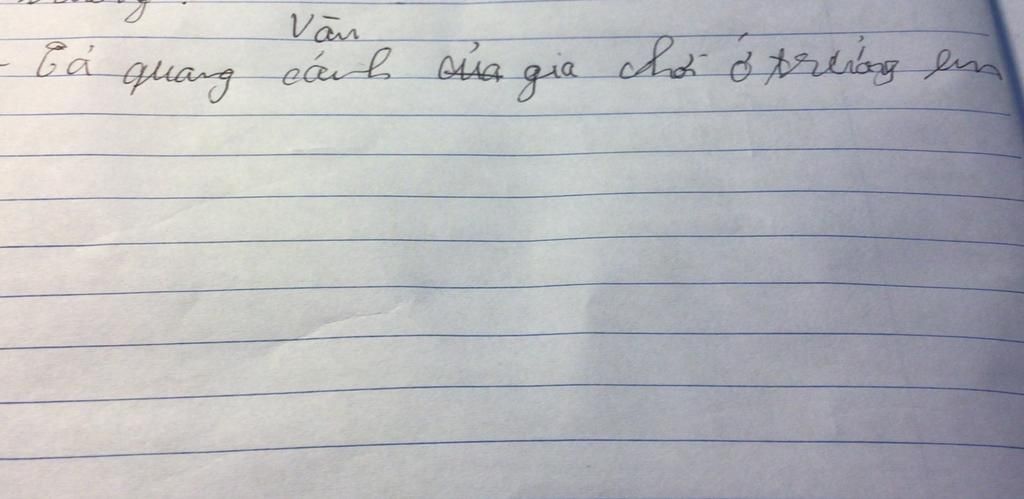 Văn
- Tả quang cảnh của gia chơi ở trường em